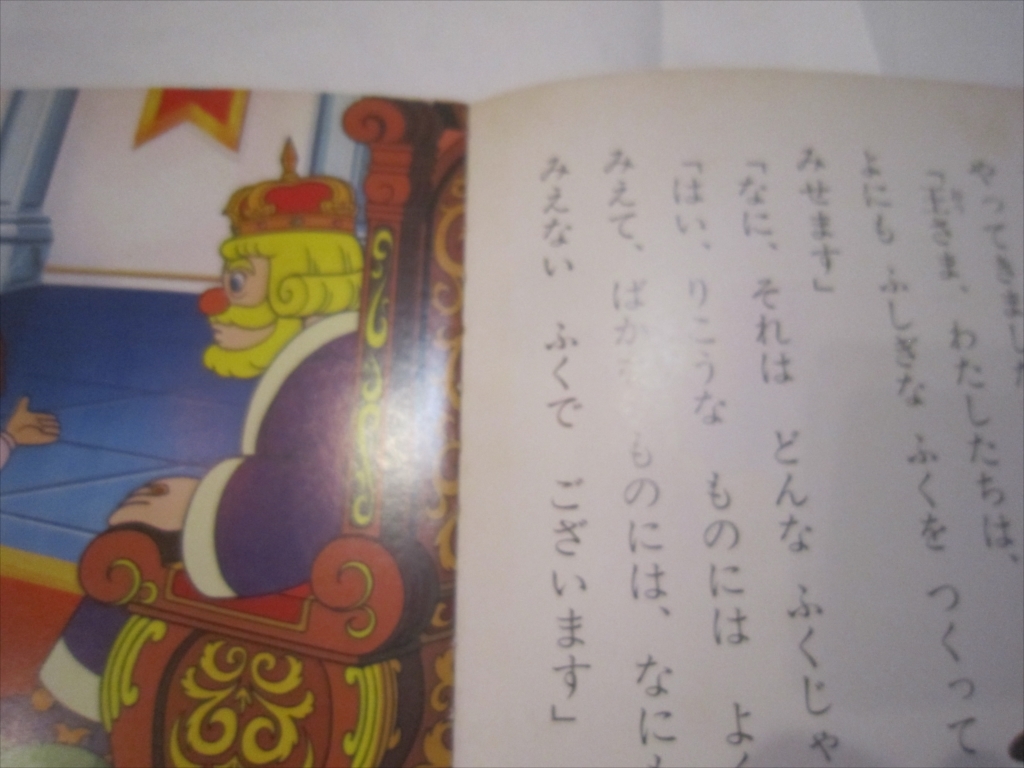 やってきました
「王さま、わたしたちは、
よにも ふしぎな ふくを つくって
みせます」
「なに、それは どんな ふくじゃ
「はい、りこうな ものには よく
みえて、ばかな ものには、なにも
みえない ふくで ございます」